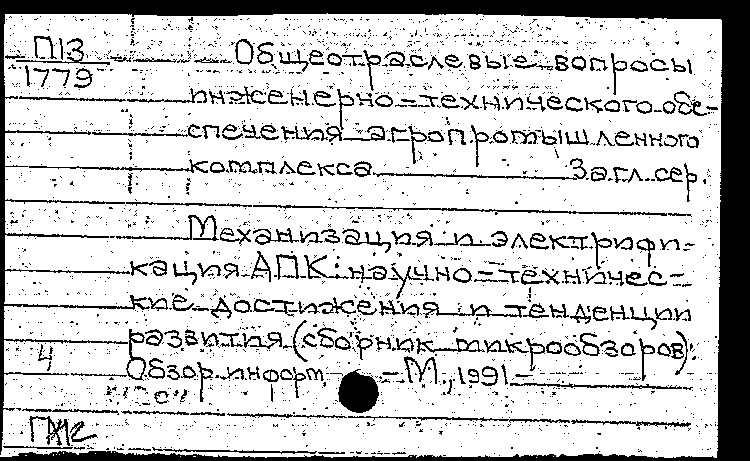 П13
1779
Общеотраслевые вопросы
инженерно-технического обе-
спечения агропромышленного
комплекса Загл. сер.
Механизация и электрифи-
кация АПК: научно-техничес-
кие достижения и тенденции
развития (сборник микрообзоров):
4 Обзор. информ. - М., 1991 -